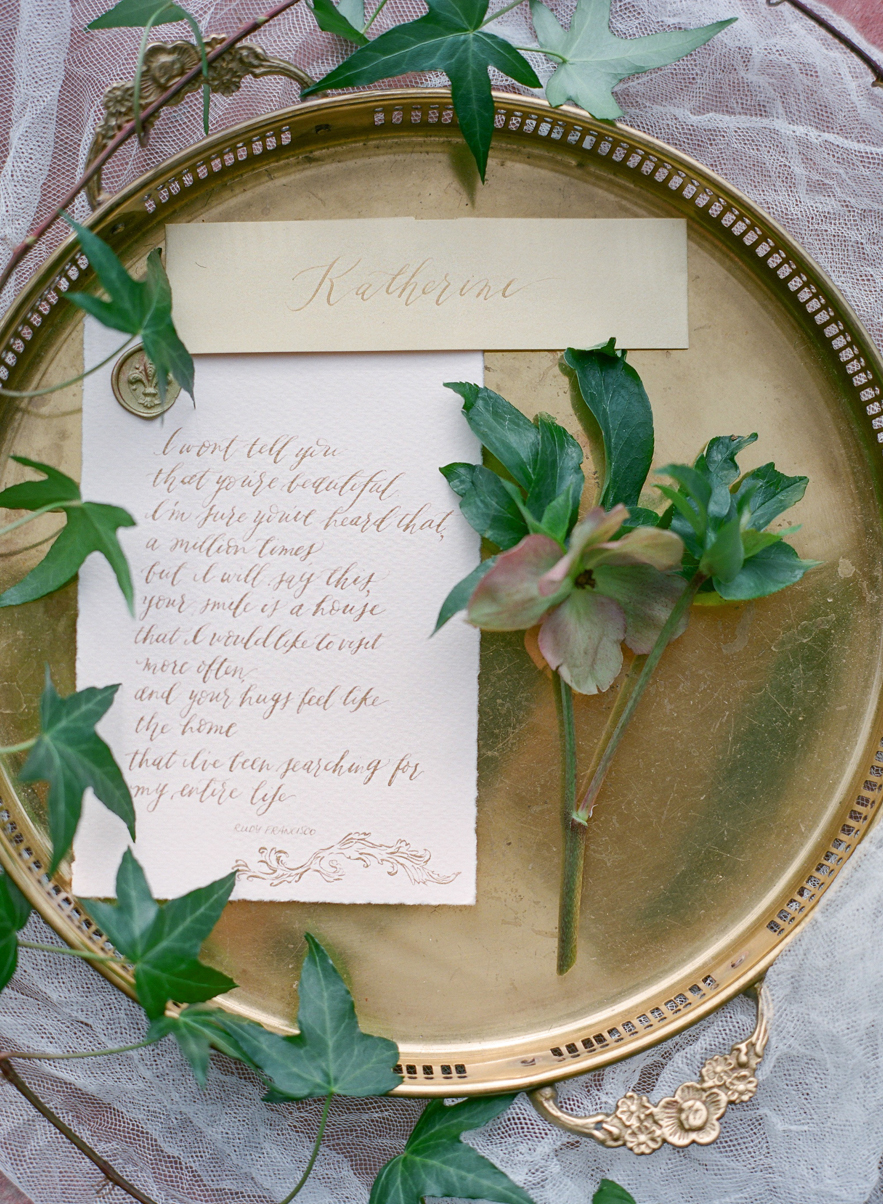 Katherine
I wont tell you
that you're beautiful
I'm sure you've heard that,
a million times
but i will say this,
your smile is a house
that I would like to visit
more often,
and your hugs feel like
the home
that i've been searching for
my entire life
RUDY FRANCISCO